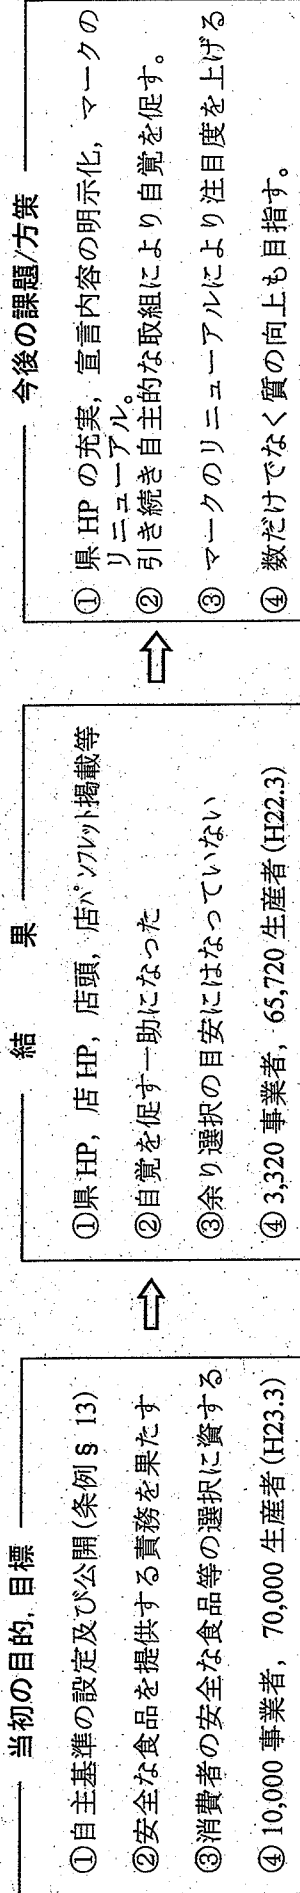 当初の目的，目標
①自主基準の設定及び公開(条例§ 13)
②安全な食品を提供する責務を果たす
③消費者の安全な食品等の選択に資する
④ 10,000 事業者， 70,000 生産者(H23.3)
結 果
①県 HP， 店 HP， 店頭， 店パンフレット掲載等
②自覚を促す一助になった
③余り選択の目安にはなっていない
④ 3,320 事業者， 65,720 生産者(H22.3)
今後の課題/方策
① 県 HP の充実， 宣言内容の明示化， マークの
リニューアル。
② 引き続き自主的な取組により自覚を促す。
③ マークのリニューアルにより注目度を上げる
④ 数だけでなく質の向上も目指す。